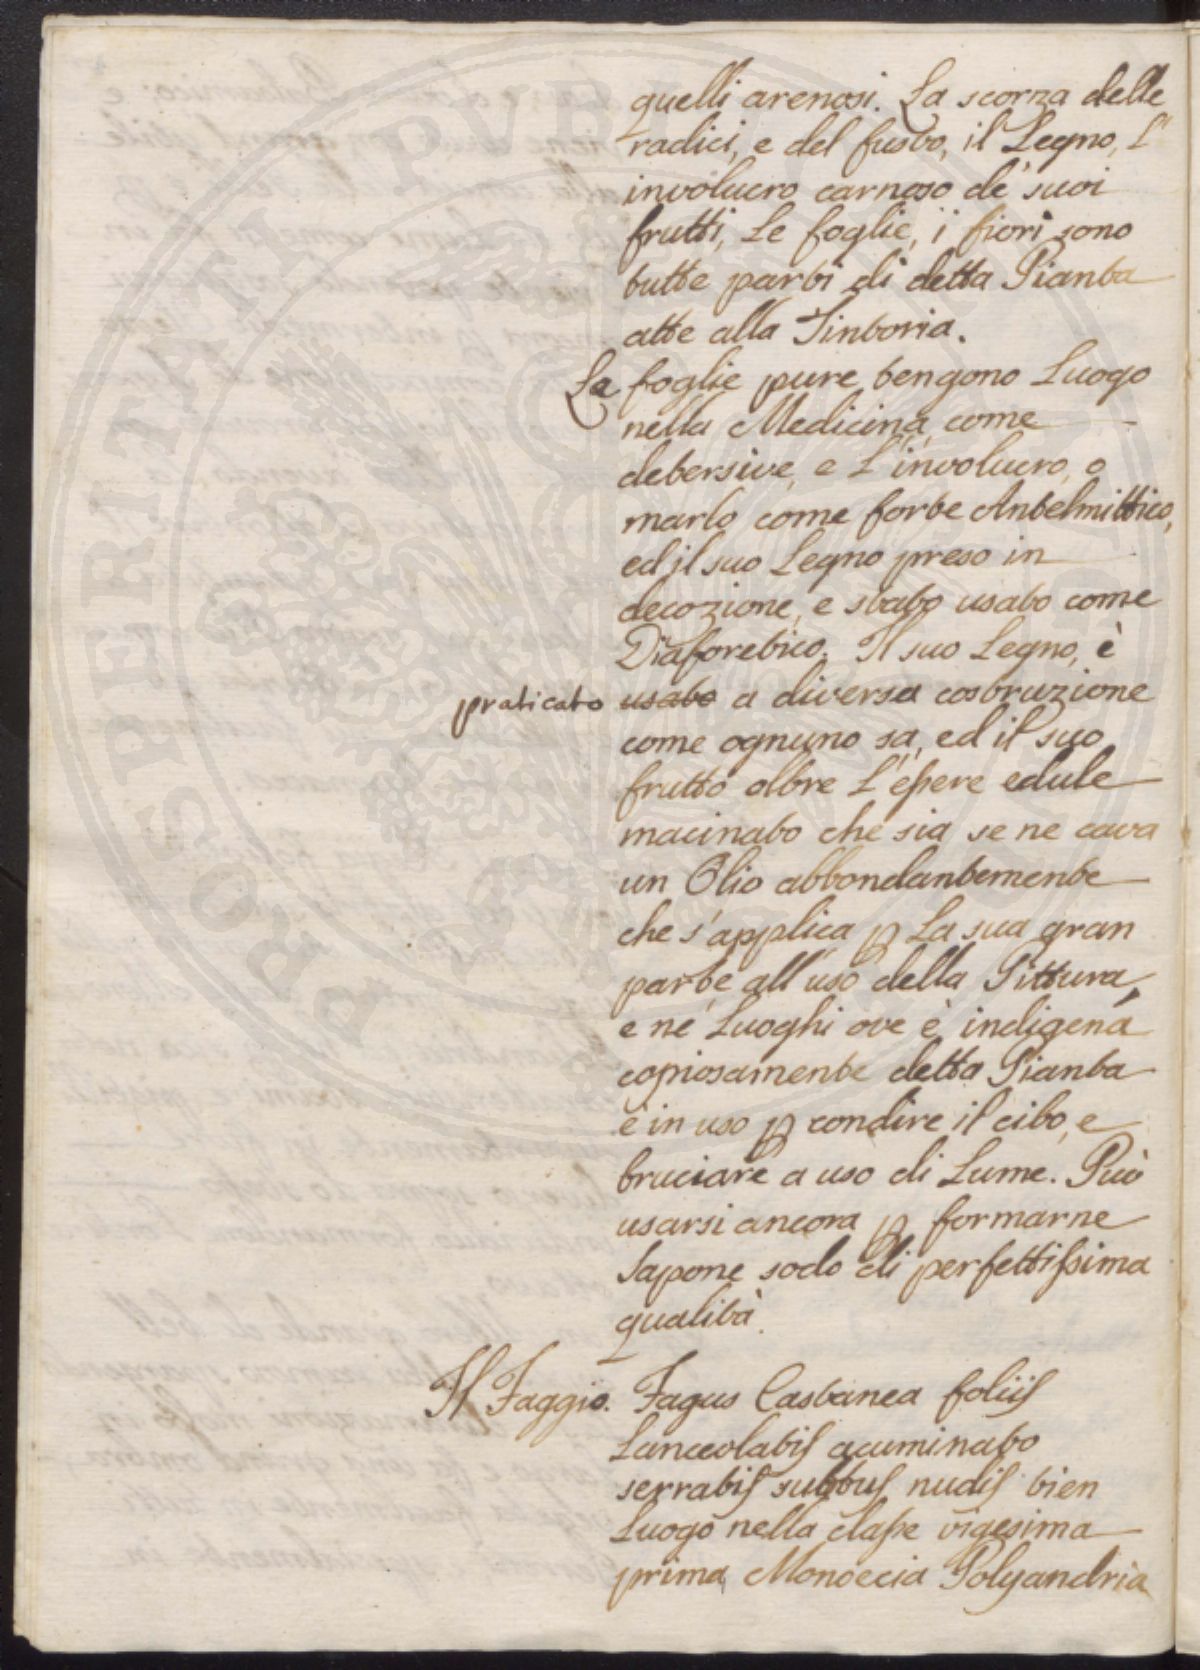 quelli arenosi. La scorza delle
radici, e del fusto, il Legno, L'
involucro carnoso de' suoi
frutti, Le foglie, i fiori sono
tutte parti di detta Pianta
atte alla Tintoria.
Le foglie pure tengono Luogo
nella Medicina, come
detersive, e L'involucro, o
marlo come forte Antelmittico,
ed il suo Legno preso in
decozione, e stato usato come
Diaforetico. Il suo Legno, è
praticato usato a diversa costruzione
come ognuno sa, ed il suo
frutto oltre L'essere edule
macinato che sia se ne cava
un Olio abbondantemente
che s'applica p La sua gran
parte all'uso della Pittura,
e ne' Luoghi ove è indigena
copiosamente detta Pianta
è in uso p condire il cibo, e
bruciare a uso di Lume. Può
usarsi ancora p formarne
Sapone sodo di perfettissima
qualità.
Il Faggio. Fagus Castanea foliis
Lanceolatis acuminato
serratis subtus nudis tien
Luogo nella classe vigesima
prima Monoecia Polyandria
PROSPERITATI PVBLICAE